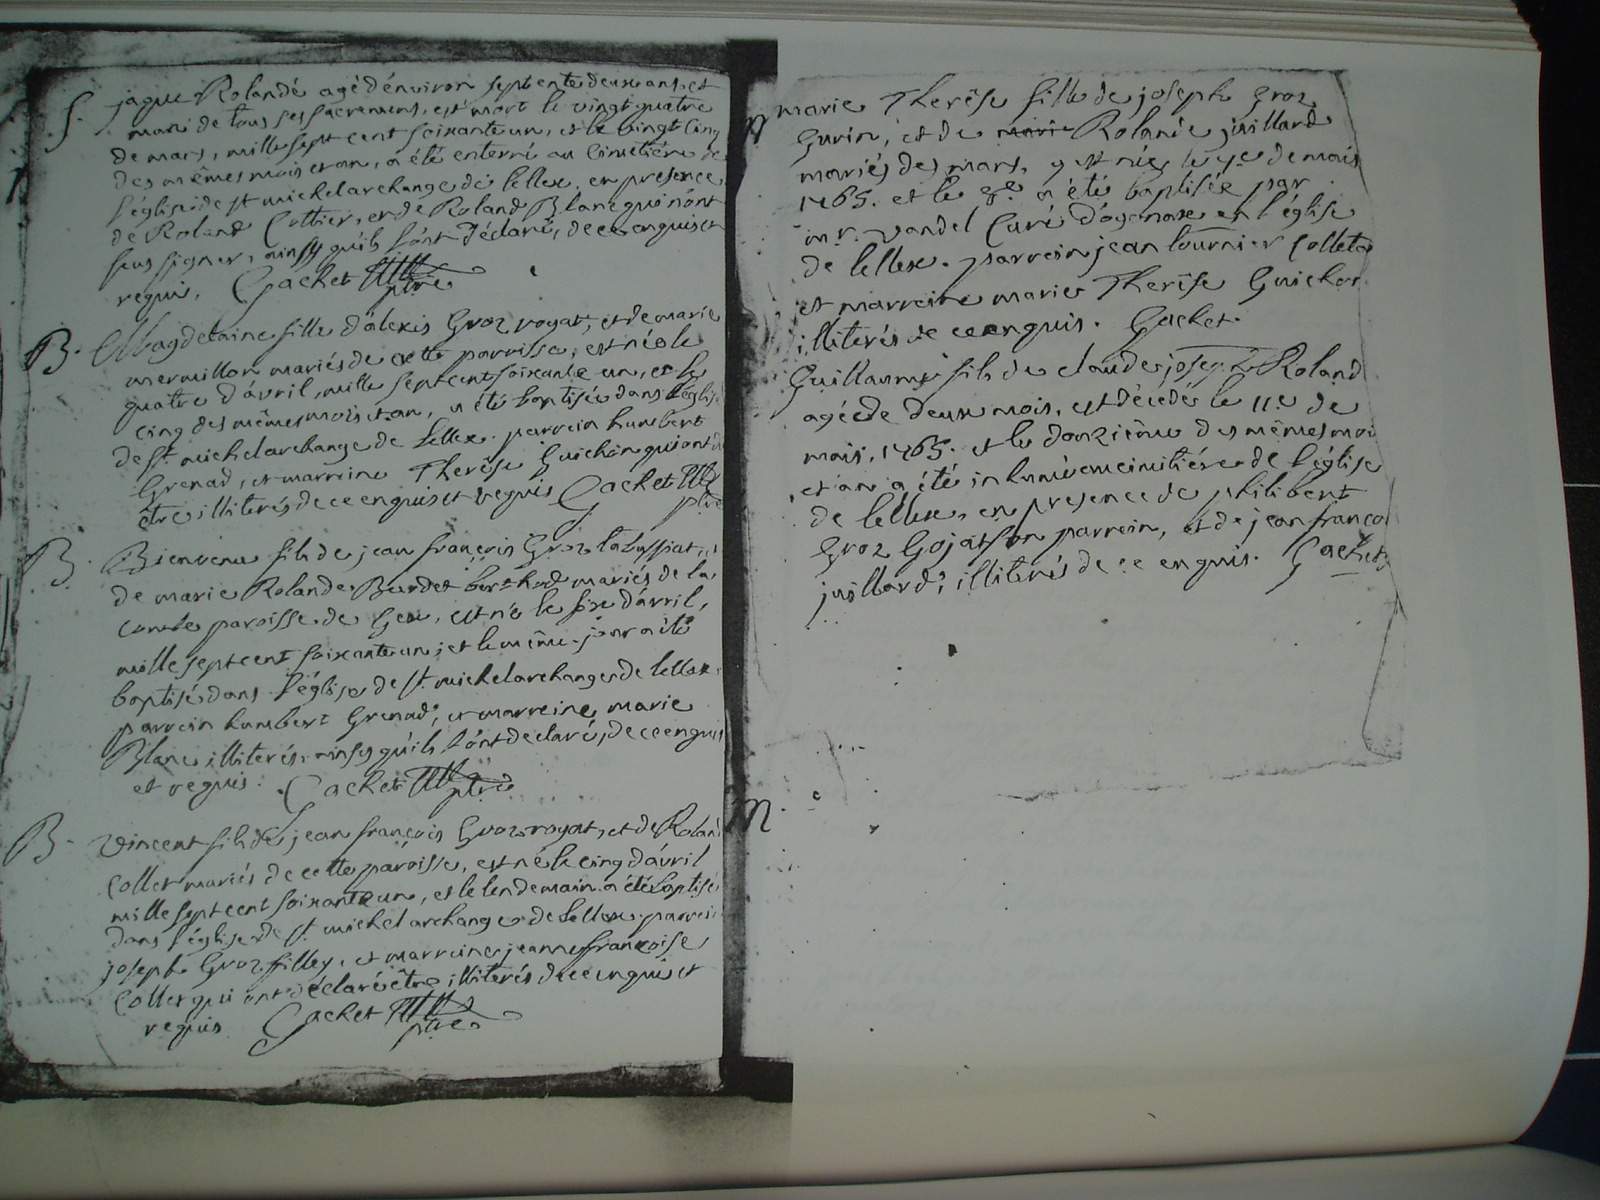 S. jaque Rolandé agé d'énviron septente deux ans, et
muni de tous ses sacremens, est mort le vingt quatre
de mars, mille sept cent soixante un, et le vingt cinq
des mêmes mois et an, a été enterré au cimetière de
l'église de st michel archange de lellex, en presence
de Roland Collier, et de Roland Blanc qui n'ont
sçus signer, ainsy qu'ils l'ont déclaré, de ce enquis et
requis. Gachet ptre
B. Magdelaine fille d'alexis Groz royat, et de marie
mermillon mariés de cette parroisse, est née le
quatre d'avril, mille sept cent soixante un, et le
cinq des mêmes mois et an, a été baptisée dans l'église
de st michel archange de lellex. parrein humbert
Grenad, et marreine Therêse Guichon qui ont
être illiterés de ce enquis et requis Gachet
ptre
B. Bienvenu fils de jean françois Groz lassiat, et
de marie Rolande Burdet mariés de la
paroisse de Gex, est né le six d'avril,
mille sept cent soixante un, et le même jour a été
baptisé dans l'église de st michel archange de lellex.
parrein humbert Grenad, et marreine marie
Blanc illiterés, ainsy qu'ils l'ont declaré, de ce enquis
et requis. Gachet ptre
B. Vincent fils de jean françois Groz royat, et de Rolande
Collet mariés de cette paroisse, est né le cinq d'avril
mille sept cent soixante un, et le lendemain a été baptisé
dans l'église de st michel archange de lellex. parrein
joseph Groz filley, et marreine jeanne françoise
Collet qui ont déclaré être illiterés de ce enquis et
requis Gachet
ptre
marie Therêse fille de joseph Groz
Gurin, et de marie Rolande juillard
mariés des mars, y est née le 7e de mais
1765. et le 8e a été baptisée par
mr. vandel Curé d'oyonax en l'église
de lellex. parrein jean tournier Colleta
et marreine marie Therêse Guichon
illiterés de ce enquis. Gachet.
Guillaume fils de claude joseph Roland
agé de deux mois, est décedé le 11e de
mais, 1765. et le douzième des mêmes moi
et an a été inhumé au cimitiére de l'église
de lellex, en presence de philibert
Groz Gojat son parrein, et de jean françoi
juillard, illiterés de ce enquis. Gachet
m.